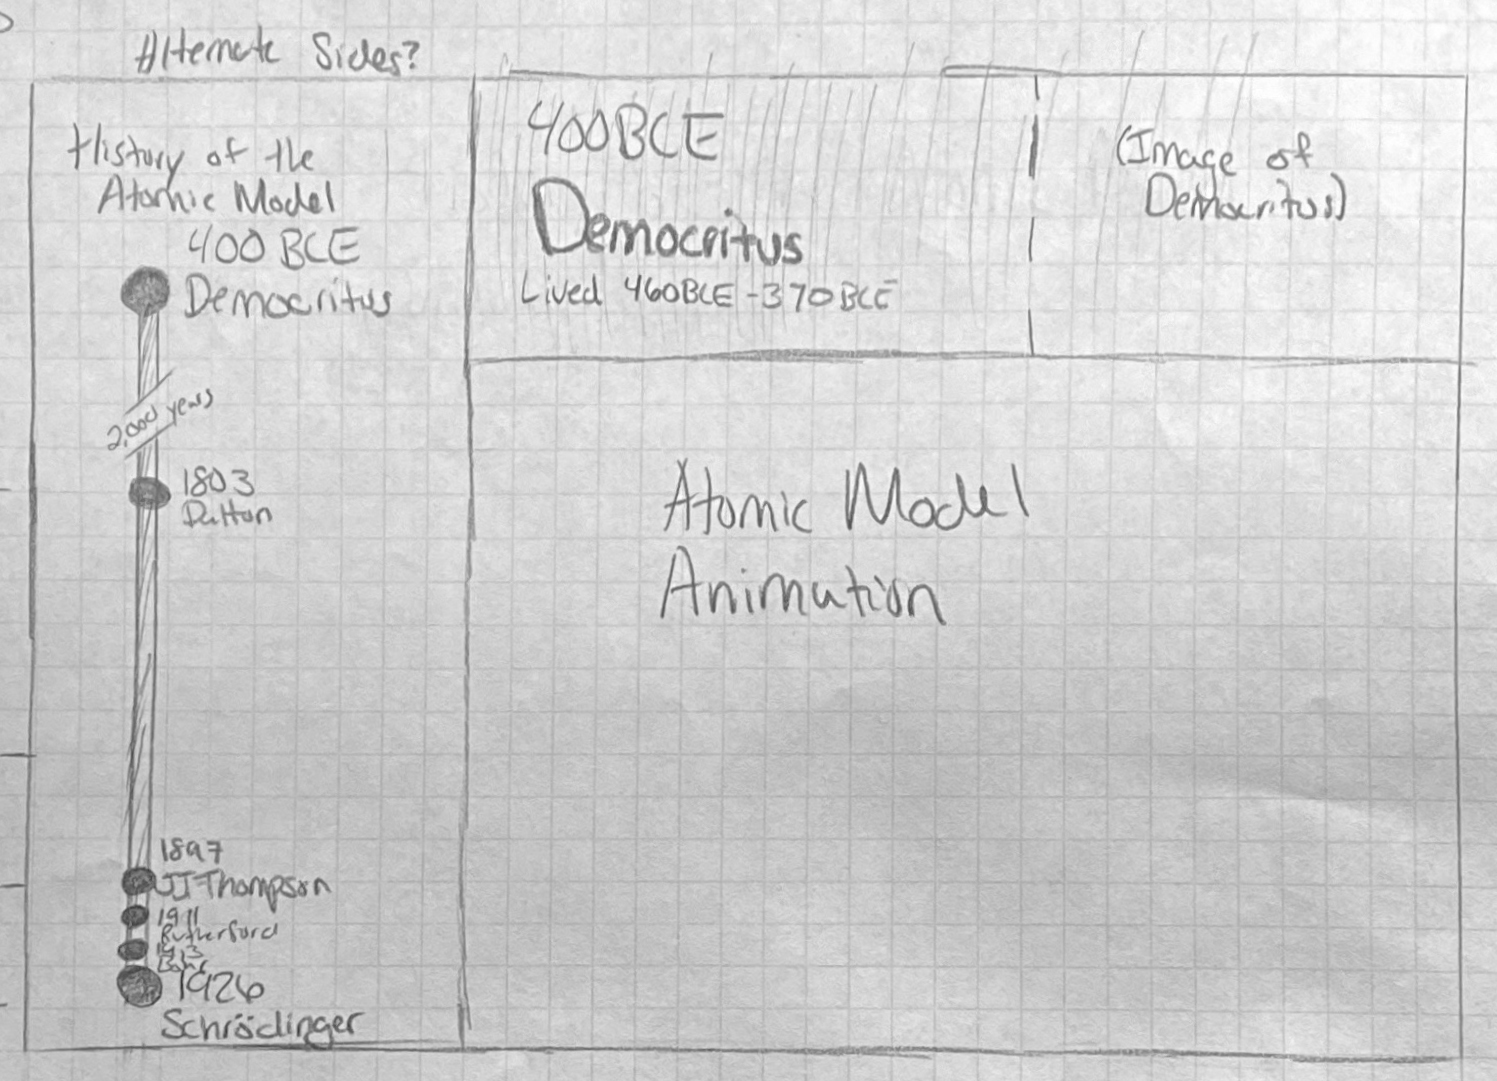 Alternate Sides?
History of the
Atomic Model
400 BCE
Democritus
2,000 years
1803
Dalton
1897
JJ Thompson
1911
Rutherford
1913
Bohr
1926
Schrödinger
400 BCE
Democritus
Lived 460BCE - 370BCE
(Image of
Democritus)
Atomic Model
Animation